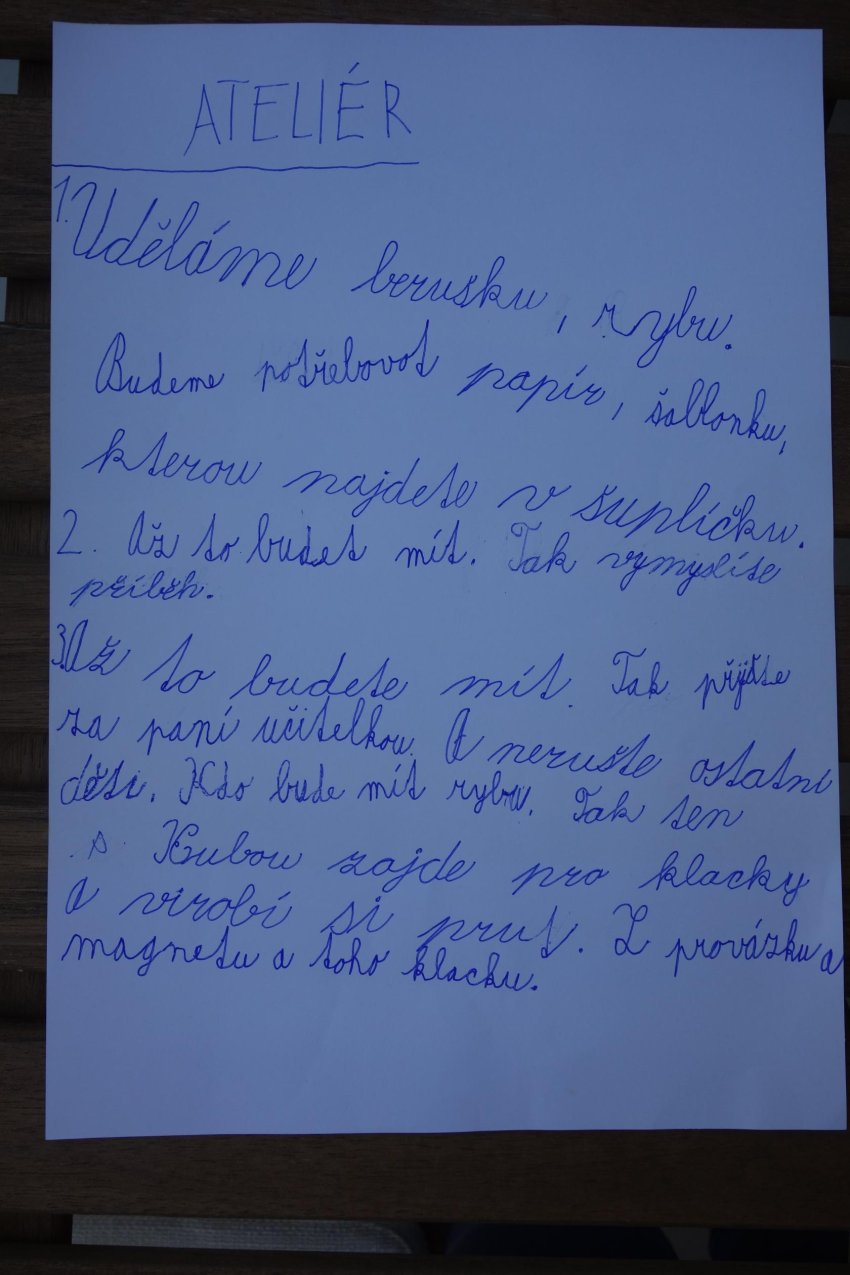 ATELIÉR
1. Uděláme berušku, rybu.
Budeme potřebovat papír, šablonku,
kterou najdete v šuplíčku.
2. Až to budet mít. Tak vymyslíte
příběh.
3. Až to budete mít. Tak přijďte
za paní učitelkou. A nerušte ostatní
děti. Kdo bude mít rybu. Tak ten
s Kubou zajde pro klacky
a virobí si prut. Z provázku a
magnetu a toho klacku.